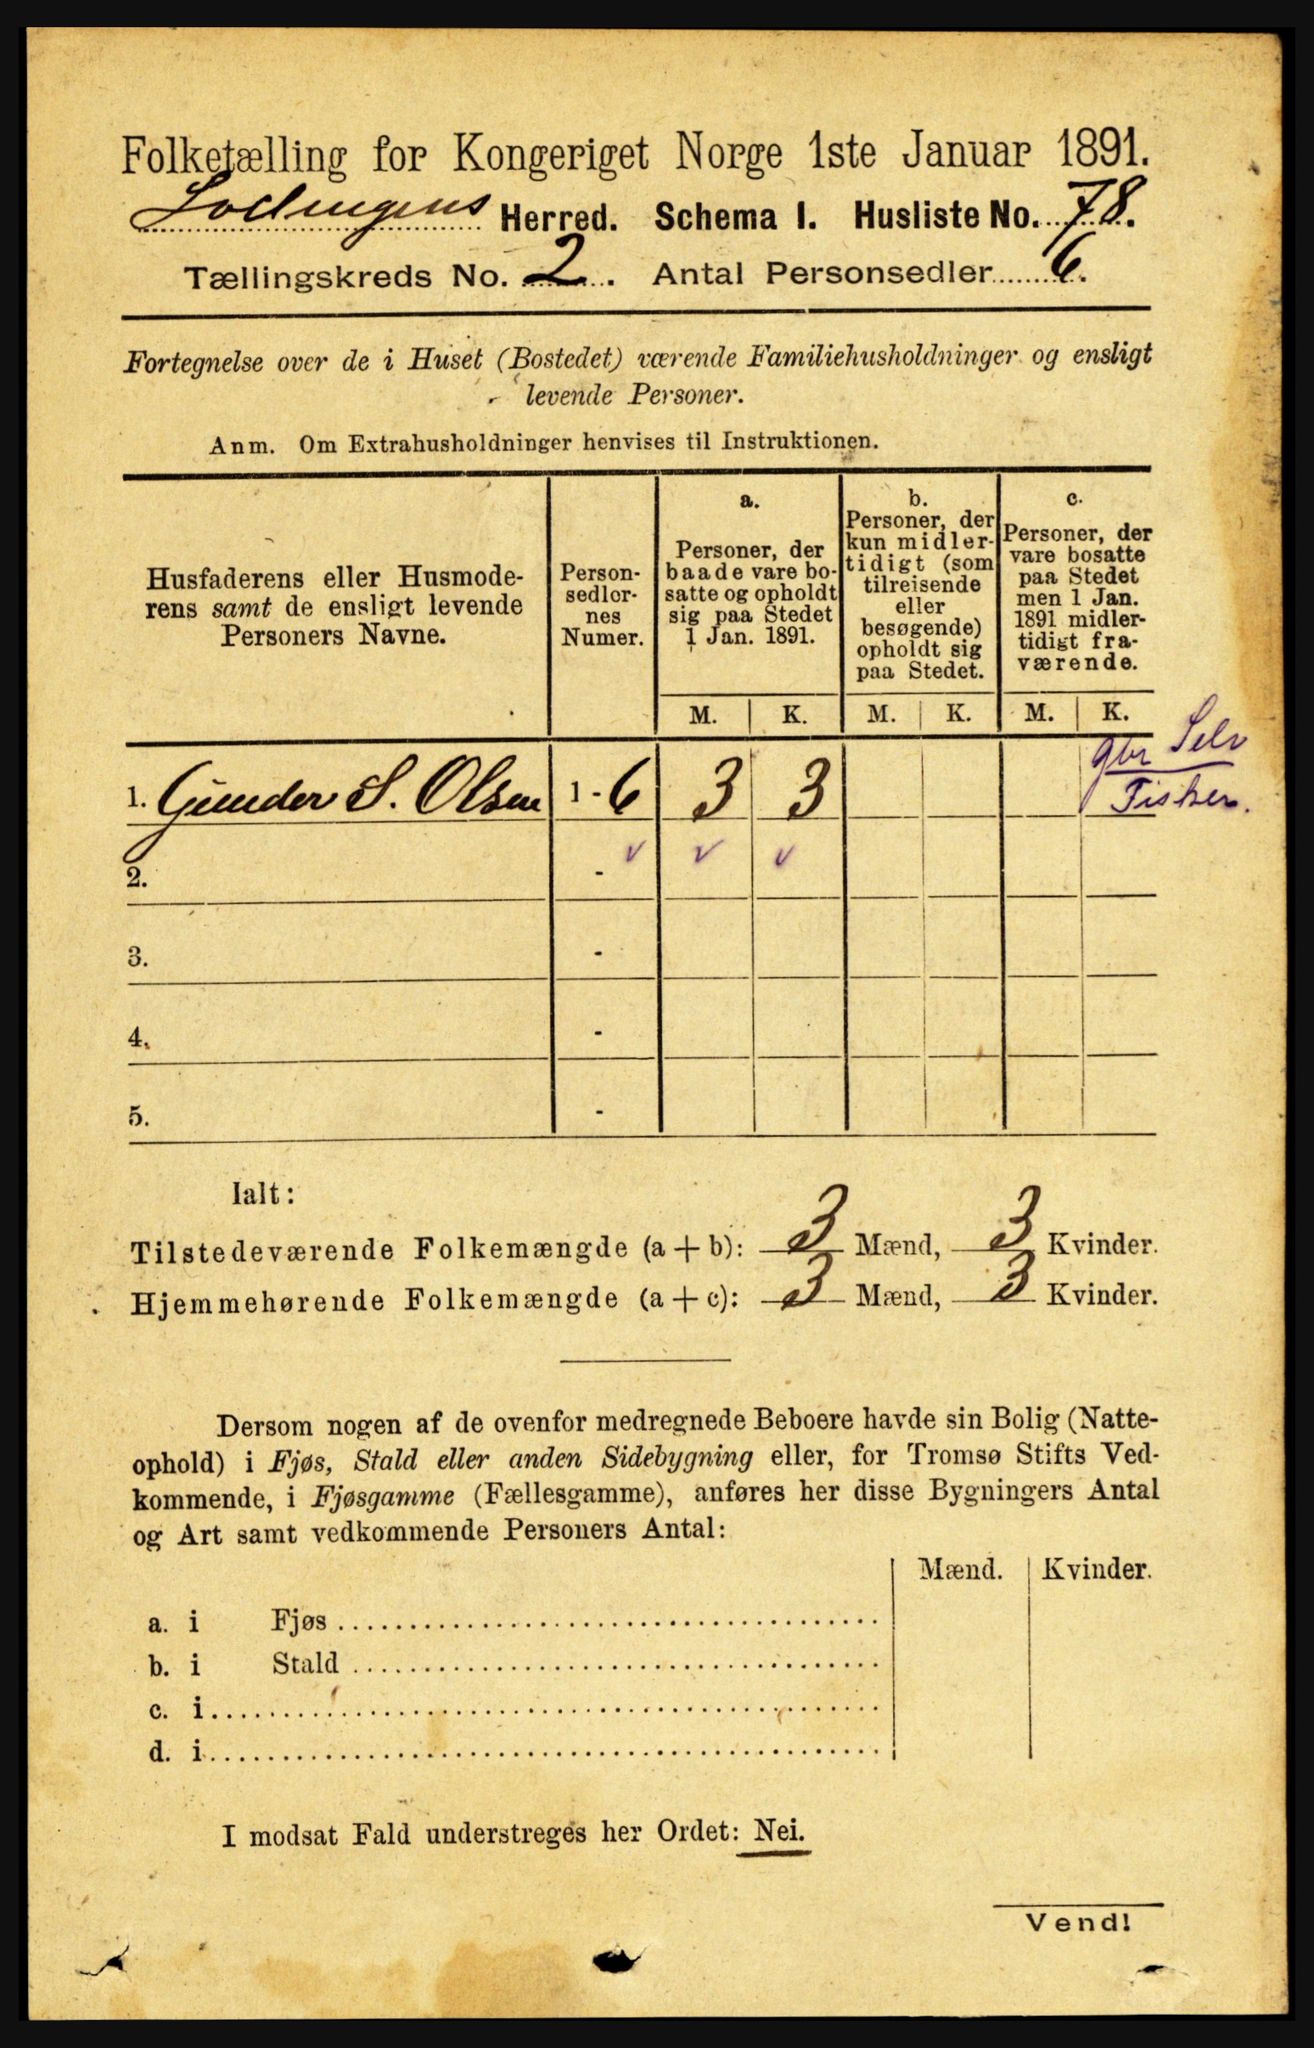 Folketælling for Kongeriget Norge 1ste Januar 1891.
Lodingens Herred. Schema I. Husliste No. 78.
Tællingskreds No. 2. Antal Personsedler 6.
Fortegnelse over de i Huset (Bostedet) værende Familiehusholdninger og ensligt
levende Personer.
Anm. Om Extrahusholdninger henvises til Instruktionen.
Husfaderens eller Husmode-
rens samt de ensligt levende
Personers Navne.
Person-
sedler-
nes
Numer.
a.
Personer, der
baade vare bo-
satte og opholdt
sig paa Stedet
1 Jan. 1891.
b.
Personer, der
kun midler-
tidigt (som
tilreisende
eller
besøgende)
opholdt sig
paa Stedet.
c.
Personer, der
vare bosatte
paa Stedet
men 1 Jan.
1891 midler-
tidigt fra-
værende.
M. K. M. K. M. K.
gbr Selv
Fisker.
1. Gunder S. Olsen 1 - 6 3 3
2. -
3. -
4. -
5. -
Ialt:
Tilstedeværende Folkemængde (a + b): 3 Mænd, 3 Kvinder.
Hjemmehørende Folkemængde (a + c): 3 Mænd, 3 Kvinder.
Dersom nogen af de ovenfor medregnede Beboere havde sin Bolig (Natte-
ophold) i Fjøs, Stald eller anden Sidebygning eller, for Tromsø Stifts Ved-
kommende, i Fjøsgamme (Fællesgamme), anføres her disse Bygningers Antal
og Art samt vedkommende Personers Antal:
Mænd. Kvinder.
a. i Fjøs
b. i Stald
c. i
d. i
I modsat Fald understreges her Ordet: Nei.
Vend!